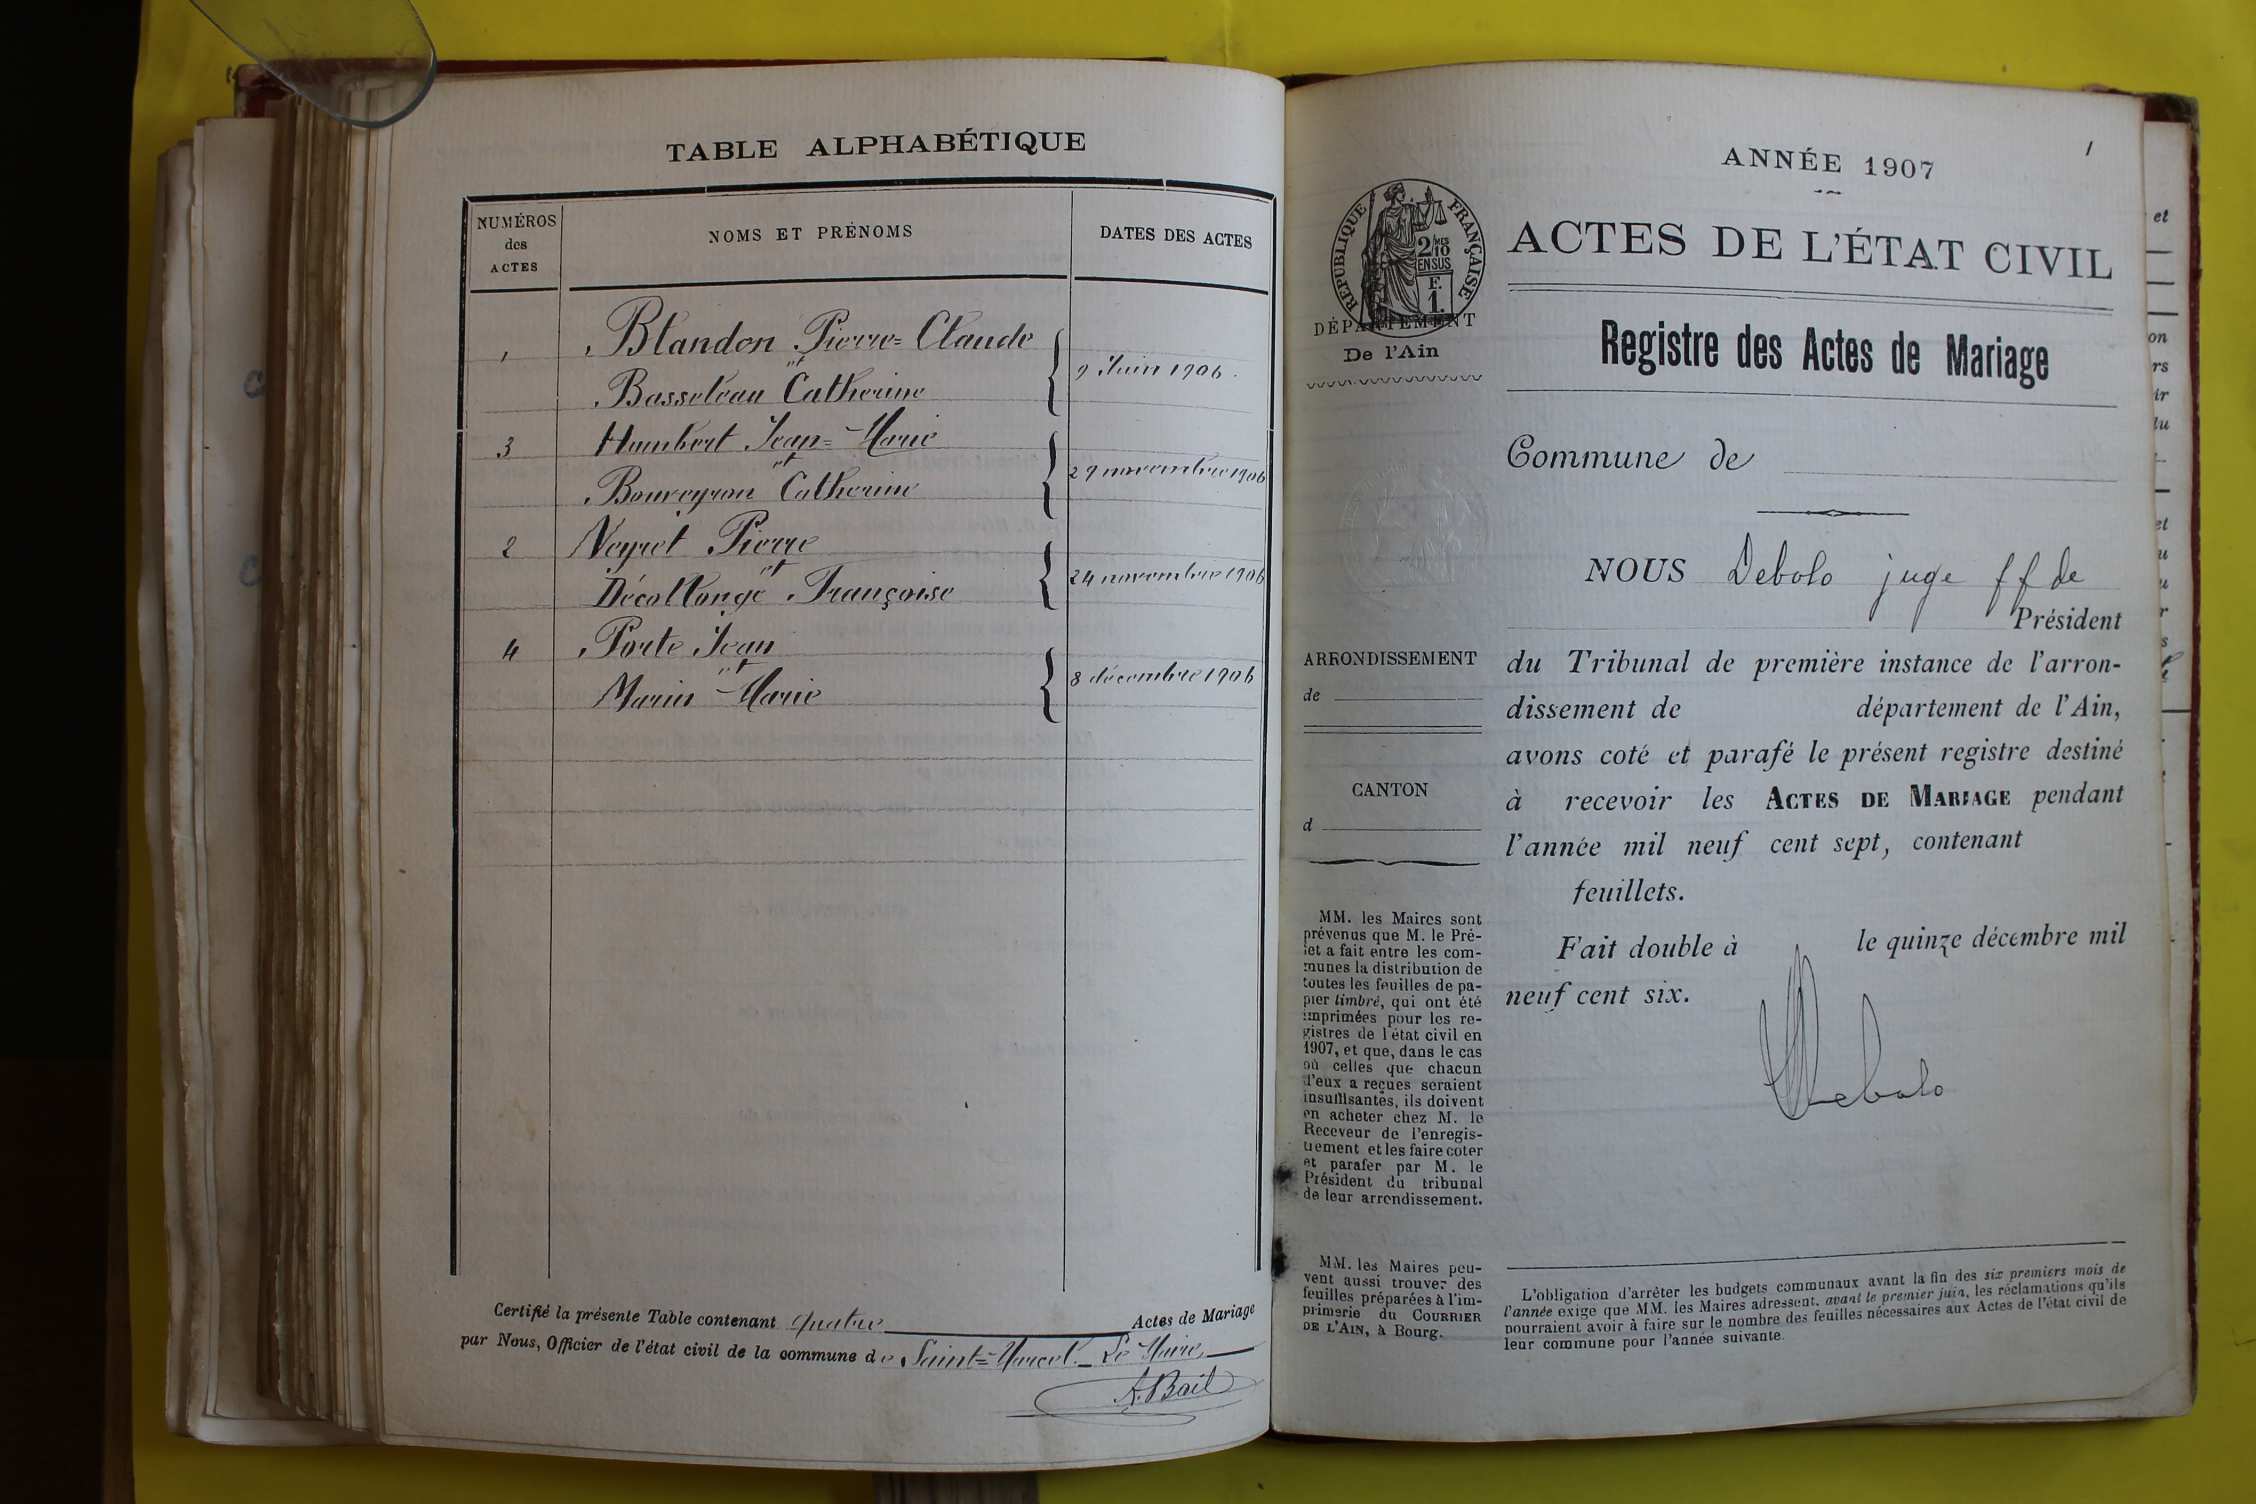 TABLE ALPHABÉTIQUE
NUMÉROS des ACTES
NOMS ET PRÉNOMS
DATES DES ACTES
1 Blandon Pierre=Claude
et
Basseleau Catherine
9 Juin 1906.
3 Humbert Jean=Marie
et
Boureyron Catherine
29 novembre 1906
2 Neyret Pierre
et
Décollonge Françoise
24 novembre 1906
4 Porte Jean
et
Marin Marie
8 décembre 1906
Certifié la présente Table contenant quatre Actes de Mariage
par Nous, Officier de l'état civil de la commune de Saint=Marcel. Le Maire
A. Bail
1
ANNÉE 1907
ACTES DE L'ÉTAT CIVIL
Registre des Actes de Mariage
RÉPUBLIQUE FRANÇAISE
2/10
EN SUS
F.
1.
DÉPARTEMENT
De l'Ain
Commune de
NOUS Debolo juge ff de
Président
du Tribunal de première instance de l'arron-
dissement de département de l'Ain,
avons coté et parafé le présent registre destiné
à recevoir les ACTES DE MARIAGE pendant
l'année mil neuf cent sept, contenant
feuillets.
Fait double à le quinze décembre mil
neuf cent six.
Debolo
ARRONDISSEMENT
de
CANTON
d
MM. les Maires sont
prévenus que M. le Pré-
fet a fait entre les com-
munes la distribution de
toutes les feuilles de pa-
pier timbré, qui ont été
imprimées pour les re-
gistres de l'état civil en
1907, et que, dans le cas
où celles que chacun
d'eux a reçues seraient
insuffisantes, ils doivent
en acheter chez M. le
Receveur de l'enregis-
trement et les faire coter
et parafer par M. le
Président du tribunal
de leur arrondissement.
MM. les Maires peu-
vent aussi trouver des
feuilles préparées à l'im-
primerie du COURRIER
DE L'AIN, à Bourg.
L'obligation d'arrêter les budgets communaux avant la fin des six premiers mois de
l'année exige que MM. les Maires adressent, avant le premier juin, les réclamations qu'ils
pourraient avoir à faire sur le nombre des feuilles nécessaires aux Actes de l'état civil de
leur commune pour l'année suivante.